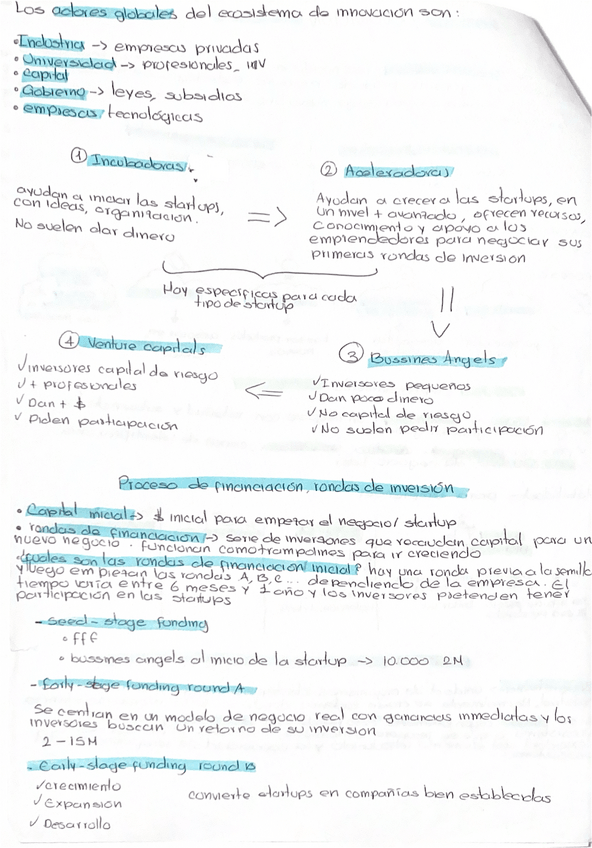 Los actores globales del ecosistema de innovación son:
• Industria -> empresas privadas
• Universidad -> profesionales, inv
• Capital
• Gobierno -> leyes, subsidios
• empresas tecnológicas
① Incubadoras
ayudan a iniciar las startups,
con ideas, organización.
No suelen dar dinero
=>
② Aceleradoras
Ayudan a crecer a las startups, en
un nivel + avanzado, ofrecen recursos,
conocimiento y apoyo a los
emprendedores para negociar sus
primeras rondas de inversión
Hay específicas para cada
tipo de startup
③ Bussines Angels
✓ Inversores pequeños
✓ Dan poco dinero
✓ No capital de riesgo
✓ No suelen pedir participación
④ Venture capitals
✓ inversores capital de riesgo
✓ + profesionales
✓ Dan + $
✓ Piden participación
Proceso de financiación, rondas de inversión.
• Capital inicial -> $ inicial para empezar el negocio/startup
• rondas de financiación -> serie de inversiones que recaudan capital para un
nuevo negocio. funcionan como trampolines para ir creciendo
¿cuales son las rondas de financiación inicial? hay una ronda previa a la semilla
y luego empiezan las rondas A, B, C... dependiendo de la empresa. El
tiempo varía entre 6 meses y 1 año y los inversores pretenden tener
participación en las startups
- seed-stage funding
• fff
• bussines angels al inicio de la startup -> 10.000 2M
- Early-stage funding round A
Se centran en un modelo de negocio real con ganancias inmediatas y los
inversores buscan un retorno de su inversión
2-15M
- Early-stage funding round B
✓ crecimiento
✓ Expansión
✓ Desarrollo
convierte startups en compañías bien establecidas